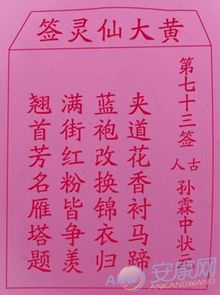 黄大仙灵签
第七十三签
古人 孙霖中状元
夹道花香衬马蹄
蓝袍改换锦衣归
满街红粉皆争羡
翘首芳名雁塔题
安康网
ANKANGWANG